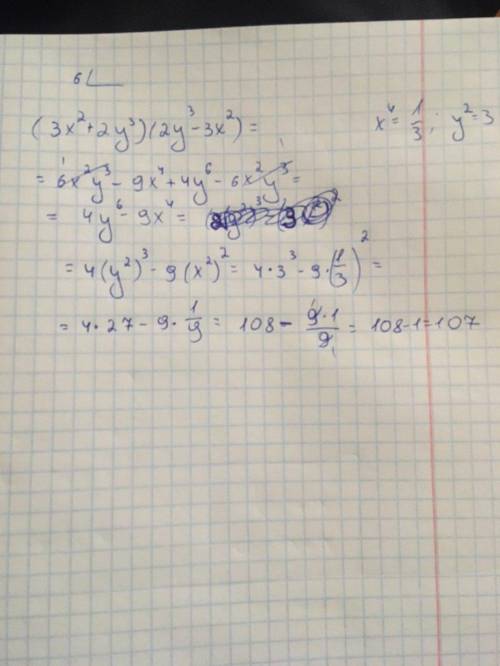 б)
(3x²+2y³)(2y³-3x²)= x⁴=1/3; y²=3
= 6x²y³ - 9x⁴+4y⁶ - 6x²y³=
= 4y⁶ - 9x⁴ =
= 4(y²)³ - 9(x²)² = 4·3³ - 9·(1/3)² =
= 4·27 - 9·1/9 = 108 - 9·1/9 = 108-1=107